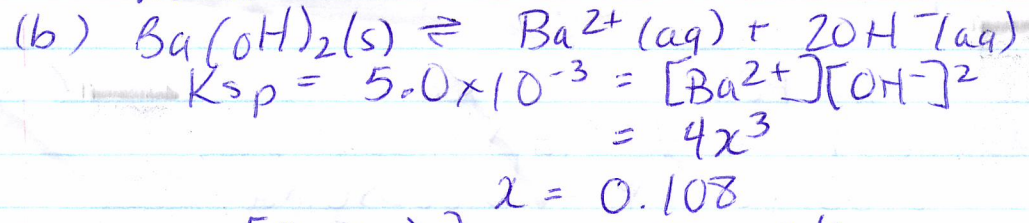 (b) Ba(OH)₂(s) ⇌ Ba²⁺(aq) + 2OH⁻(aq)
Ksp = 5.0×10⁻³ = [Ba²⁺][OH⁻]²
= 4x³
x = 0.108